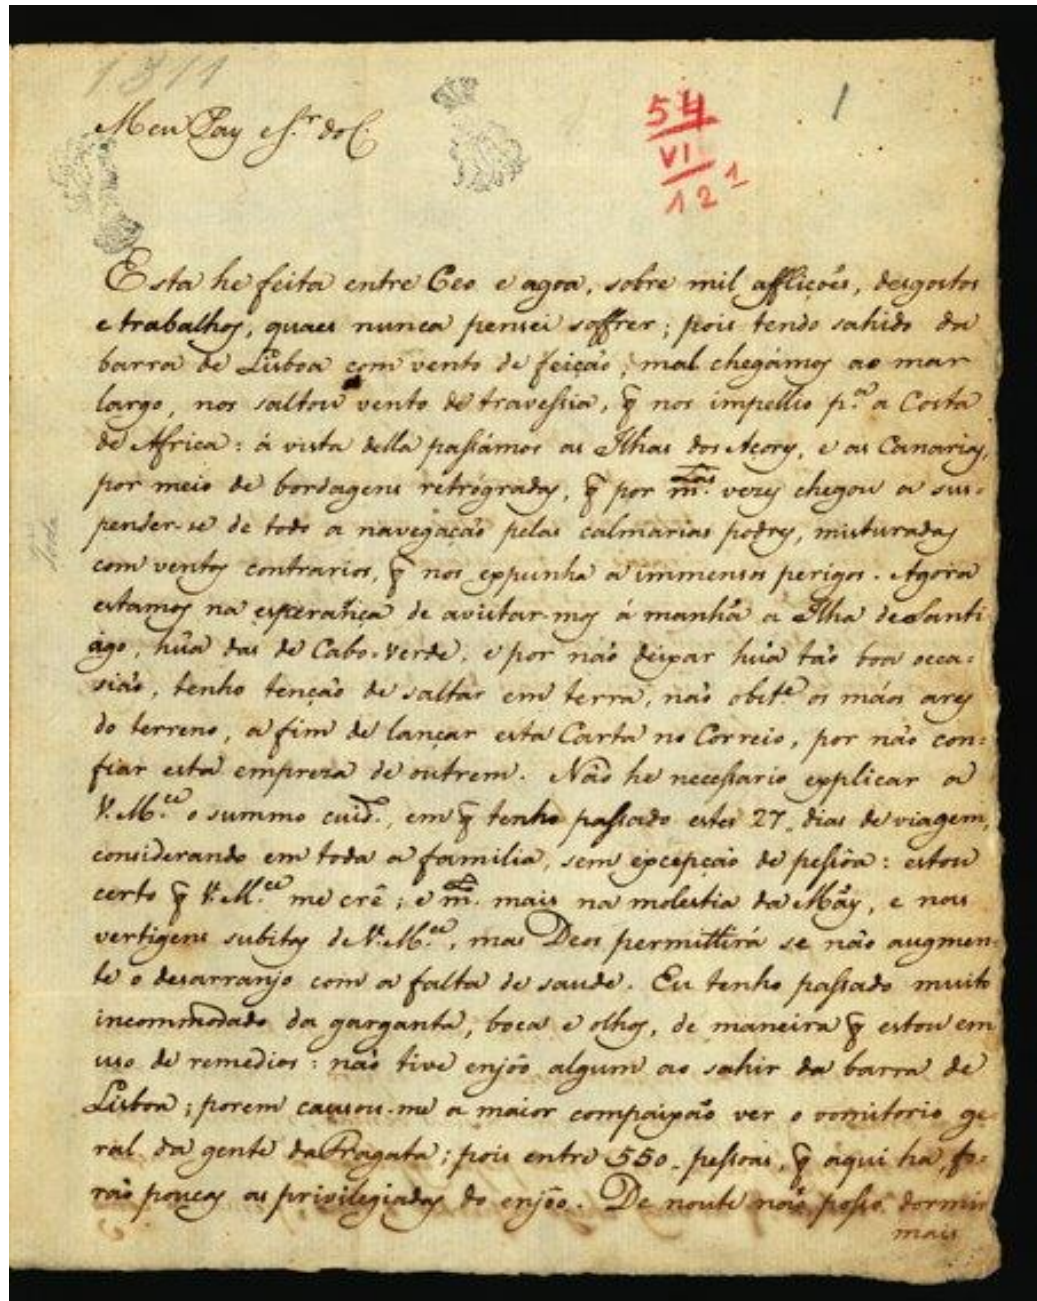 1811
Meu Pay e Sr. do C.
54
VI
12 1
1
Esta he feita entre Ceo e agoa, sobre mil afflições, desgostos
e trabalhos, quaes nunca pensei soffrer; pois tendo sahido da
barra de Lisboa com vento de feição, mal chegámos ao mar
largo, nos saltou vento de travessia, q̃ nos impellio p.ª a Costa
de Africa: á vista della passámos as Ilhas dos Açores, e as Canarias,
por meio de bordagens retrógradas, q̃ por m.tas vezes chegou a sus-
pender-se de todo a navegação pelas calmarias podres, misturadas
com ventos contrarios, q̃ nos expunha a immensos perigos. Agora
estamos na esperança de avistar-mos á manhã a Ilha de Santi
ago, hũa das de Cabo-verde, e por não deixar hũa tão boa occa-
sião, tenho tenção de saltar em terra, não obst.e os máos ares
do terreno, a fim de lançar esta Carta no Correio, por não con-
fiar esta empreza de outrem. Não he necessario explicar a
V. M.ce o summo cuid.o, em q̃ tenho passado estes 27 dias de viagem,
considerando em toda a familia, sem excepção de pessôa: estou
certo q̃ V. M.ce me crê; e m.to mais na molestia da Mãy, e nas
vertigens subitas de V. M.ce, mas Deos permittirá se não augmen-
te o desarranjo com a falta de saude. Eu tenho passado muito
incommodado da garganta, boca e olhos, de maneira q̃ estou em
uso de remedios: não tive enjôo algum ao sahir da barra de
Lisboa; porem causou-me a maior compaixão ver o vomitorio ge-
ral da gente da Fragata; pois entre 550 pessoas, q̃ aqui ha, fo-
rão poucas as privilegiadas do enjôo. De noute não posso dormir
mais